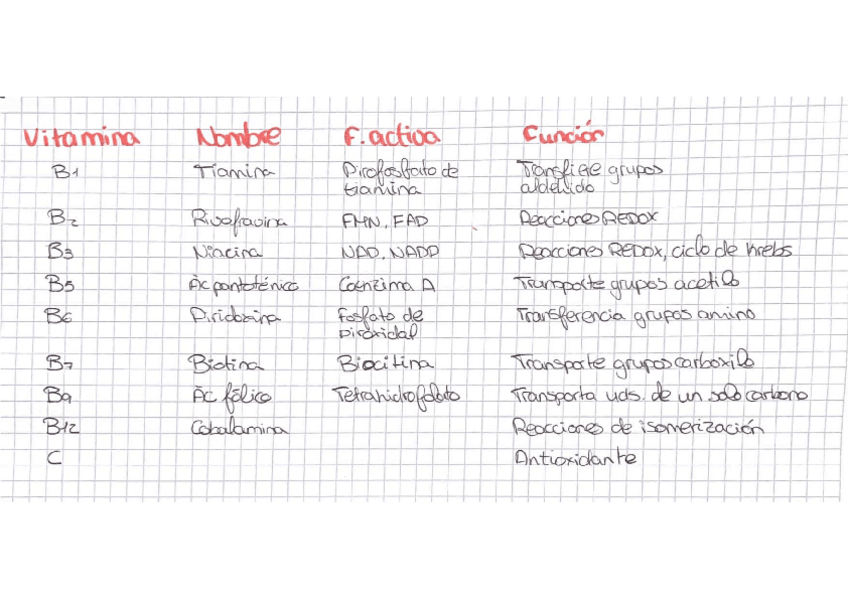 Vitamina Nombre F. activa Función
B1 Tiamina Pirofosfato de tiamina Transfiere grupos aldehído
B2 Rivoflavina FMN, FAD Reacciones REDOX
B3 Niacina NAD, NADP Reacciones REDOX, ciclo de krebs
B5 Ác pantoténico Coenzima A Transporte grupos acetilo
B6 Piridoxina Fosfato de piroxidal Transferencia grupos amino
B7 Biotina Biocitina Transporte grupos carboxilo
B9 Ác fólico Tetrahidrofolato Transporta uds. de un solo carbono
B12 Cobalamina Reacciones de isomerización
C Antioxidante